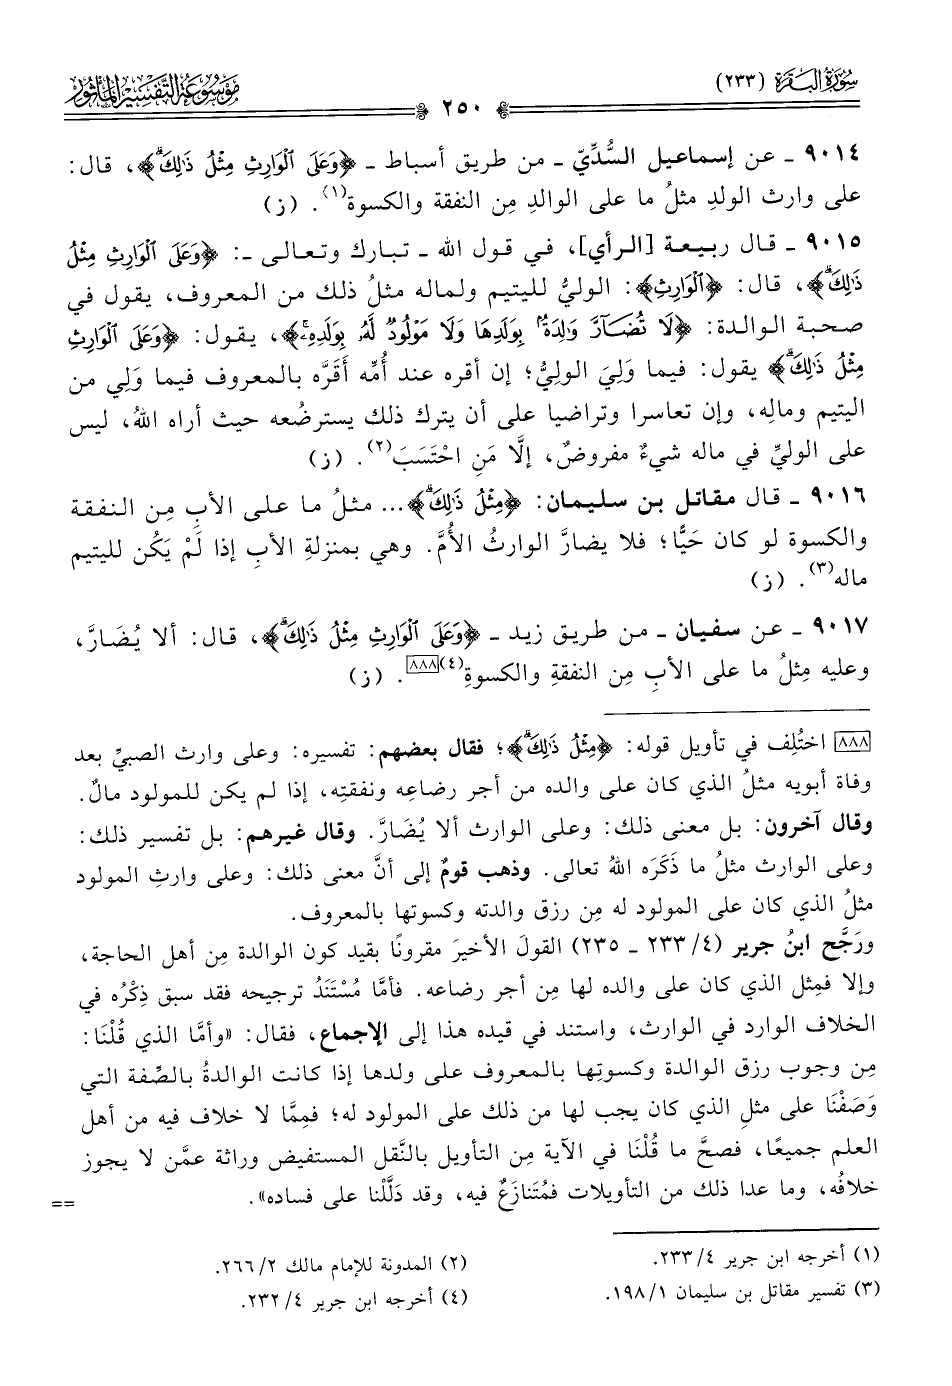 سُورَةُ البَقَرَةِ (٢٣٣)
٢٥٠
مَوْسُوعَةُ التَّفْسِيرِ المَأْثُورِ
٩٠١٤ ـ عن إسماعيل السُّدِّيّ ـ من طريق أسباط ـ ﴿وَعَلَى ٱلْوَارِثِ مِثْلُ ذَٰلِكَۗ﴾، قال:
على وارث الولدِ مثلُ ما على الوالدِ مِن النفقة والكسوة(١). (ز)
٩٠١٥ ـ قال ربيعة [الرأي]، في قول الله ـ تبارك وتعالى ـ: ﴿وَعَلَى ٱلْوَارِثِ مِثْلُ
ذَٰلِكَۗ﴾، قال: ﴿ٱلْوَارِثِ﴾: الوليُّ لليتيم ولماله مثلُ ذلك من المعروف، يقول في
صحبة الوالدة: ﴿لَا تُضَآرَّ وَٰلِدَةُۢ بِوَلَدِهَا وَلَا مَوْلُودٌ لَّهُۥ بِوَلَدِهِۦۚ﴾، يقول: ﴿وَعَلَى ٱلْوَارِثِ
مِثْلُ ذَٰلِكَۗ﴾ يقول: فيما وَلِيَ الوليُّ؛ إن أقره عند أُمِّه أَقَرَّه بالمعروف فيما وَلِي من
اليتيم ومالِه، وإن تعاسرا وتراضيا على أن يترك ذلك يسترضُعه حيث أراه اللهُ، ليس
على الوليِّ في ماله شيءٌ مفروضٌ، إلَّا مَنِ احْتَسَبَ(٢). (ز)
٩٠١٦ ـ قال مقاتل بن سليمان: ﴿مِثْلُ ذَٰلِكَۗ﴾... مثلُ ما على الأبِ مِن النفقة
والكسوة لو كان حَيًّا؛ فلا يضارَّ الوارثُ الأُمَّ. وهي بمنزلةِ الأبِ إذا لَمْ يَكُن لليتيم
ماله(٣). (ز)
٩٠١٧ ـ عن سفيان ـ من طريق زيد ـ ﴿وَعَلَى ٱلْوَارِثِ مِثْلُ ذَٰلِكَۗ﴾، قال: ألا يُضَارَّ،
وعليه مِثلُ ما على الأبِ مِن النفقةِ والكسوةِ(٤)[٨٨٨]. (ز)
[٨٨٨] اختُلِف في تأويل قوله: ﴿مِثْلُ ذَٰلِكَۗ﴾؛ فقال بعضهم: تفسيره: وعلى وارث الصبيِّ بعد
وفاة أبويه مثلُ الذي كان على والده من أجر رضاعِه ونفقتِه، إذا لم يكن للمولود مالٌ.
وقال آخرون: بل معنى ذلك: وعلى الوارث ألا يُضَارَّ. وقال غيرهم: بل تفسير ذلك:
وعلى الوارث مثلُ ما ذَكَرَه اللهُ تعالى. وذهب قومٌ إلى أنَّ معنى ذلك: وعلى وارثِ المولود
مثلُ الذي كان على المولود له مِن رزق والدته وكسوتها بالمعروف.
ورَجَّح ابنُ جرير (٤/ ٢٣٣ ـ ٢٣٥) القولَ الأخيرَ مقرونًا بقيد كون الوالدة مِن أهل الحاجة،
وإلا فمِثل الذي كان على والده لها مِن أجر رضاعه. فأمَّا مُسْتَنَدُ ترجيحه فقد سبق ذِكْرُه في
الخلاف الوارد في الوارث، واستند في قيده هذا إلى الإجماع، فقال: «وأمَّا الذي قُلْنَا:
مِن وجوب رزق الوالدة وكسوتِها بالمعروف على ولدها إذا كانت الوالدةُ بالصِّفة التي
وَصَفْنَا على مثلِ الذي كان يجب لها من ذلك على المولود له؛ فمِمَّا لا خلاف فيه من أهل
العلم جميعًا، فصحَّ ما قُلْنَا في الآية مِن التأويل بالنَّقل المستفيض وراثة عمَّن لا يجوز
خلافُه، وما عدا ذلك من التأويلات فمُتَنازَعٌ فيه، وقد دَلَّلْنا على فساده».
==
(١) أخرجه ابن جرير ٤/ ٢٣٣.
(٢) المدونة للإمام مالك ٢/ ٢٦٦.
(٣) تفسير مقاتل بن سليمان ١/ ١٩٨.
(٤) أخرجه ابن جرير ٤/ ٢٣٢.